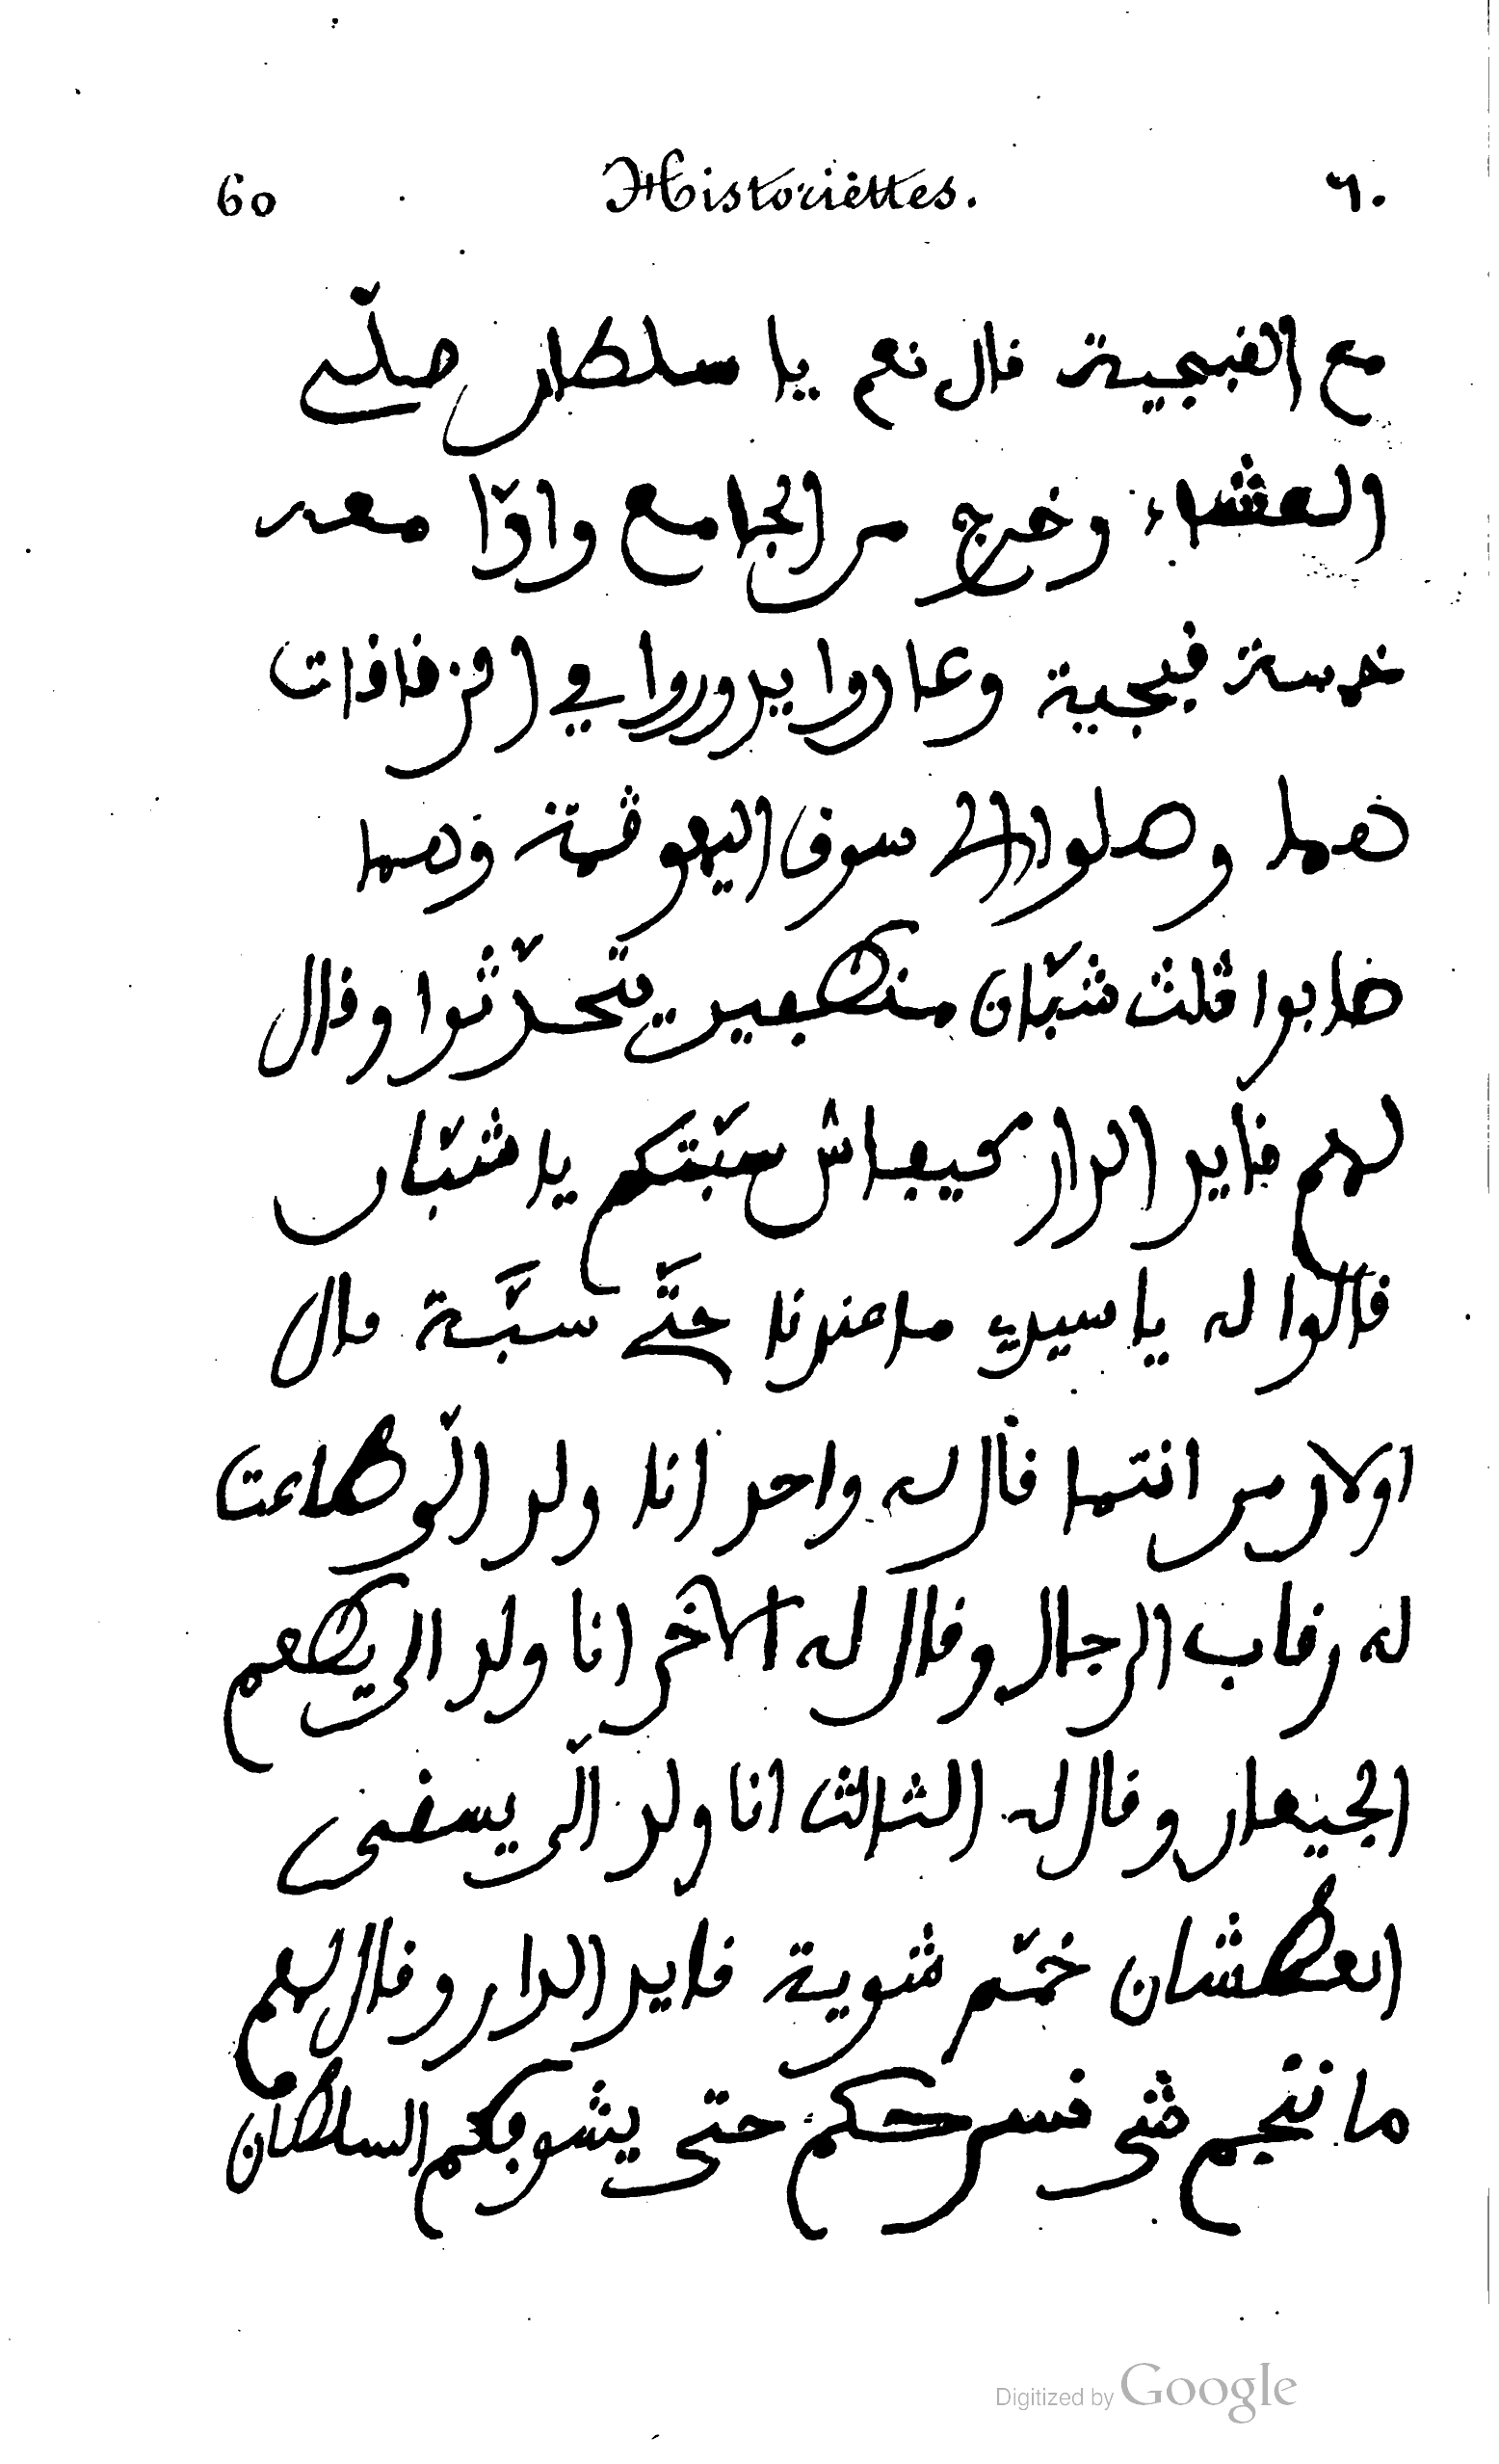 60 Historiettes. ٦٠
مع القبجية قال نعم يا سلطان صلّى
العشاء وخرج من الجامع وادّا معه
خمسة قبجية وعادوا يدوروا في الزقاقات
هما وصلوا الى سوق وهما
صابوا ثلث شبّان يتحدّثوا وقال
لهم قايد الدار كيفاش سبّتكم يا شبّان
قالوا له يا سيدي ما عندنا حتّى سبّة قال
اولاد من انتما قال له واحد انا ولد الّي طاعت
له رقاب الرجال وقال له الآخر انا ولد الي يطعم
الجيعان وقال له الثالث انا ولد الّي يسقى
العطشان خمّم شوية قايد الدار وقال لهم
ما ننجم شى نسرحكم حتى يشوفكم السلطان
Digitized by Google